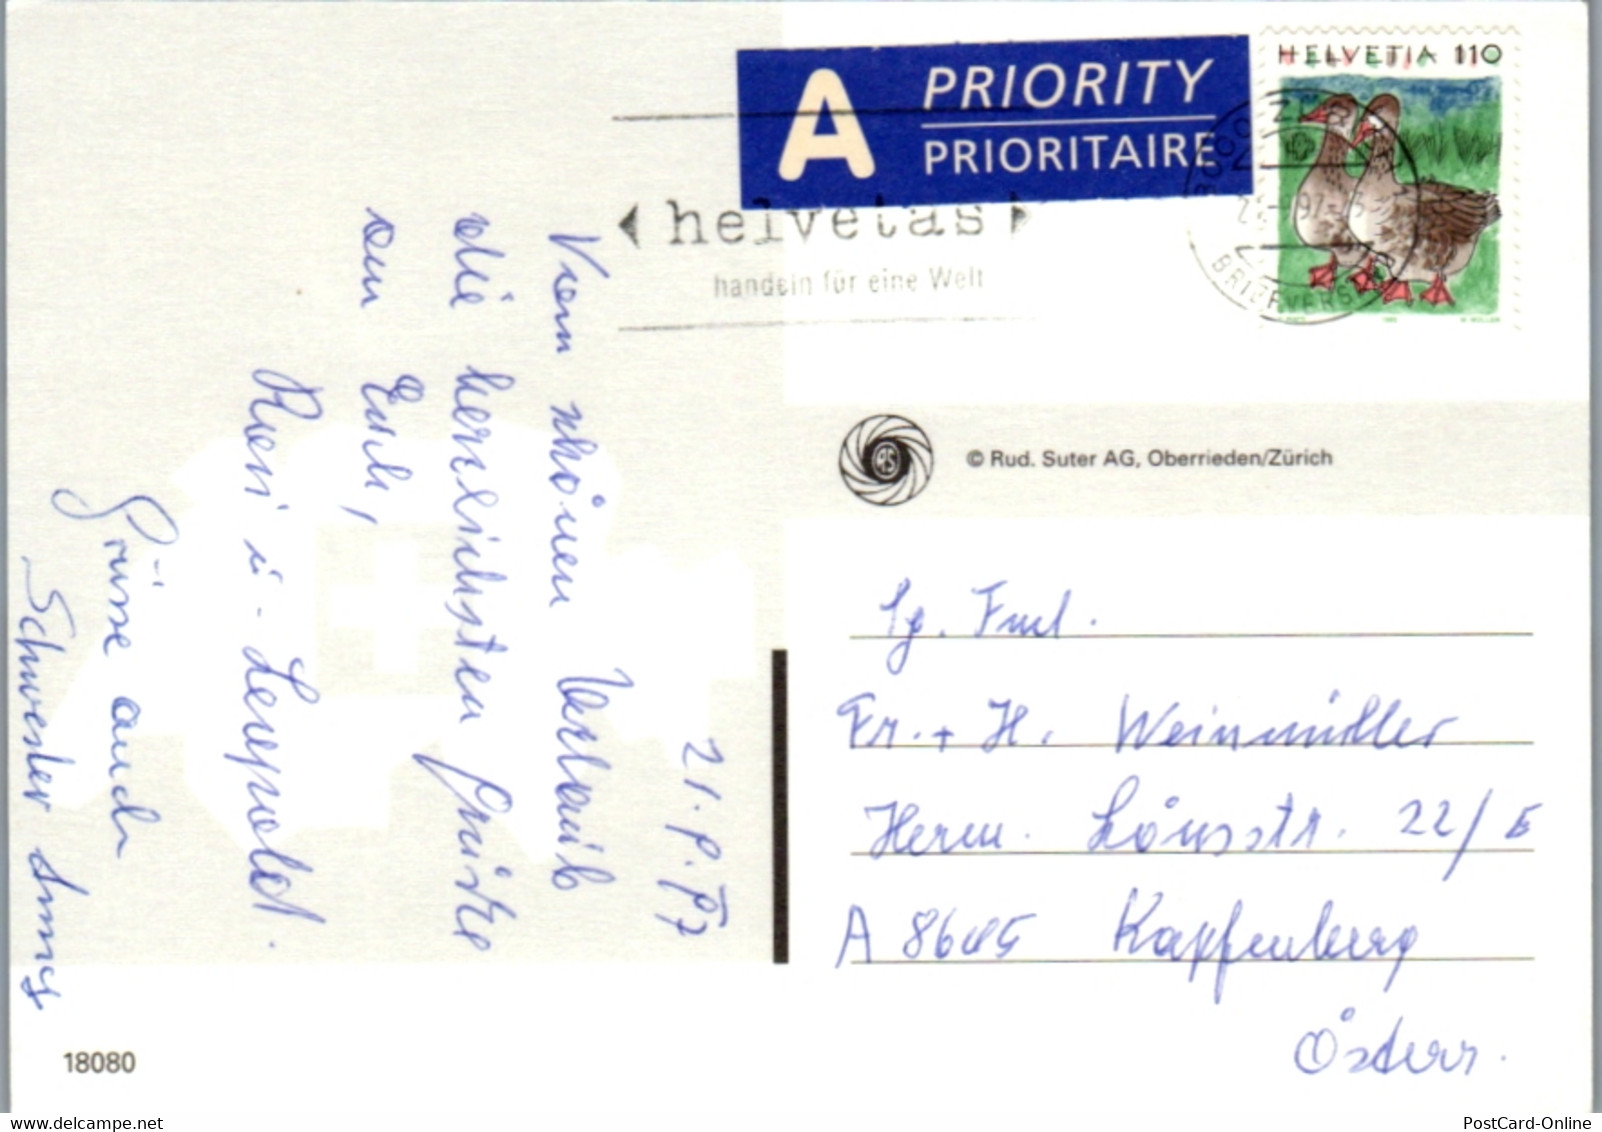 HELVETIA 110
A PRIORITY
PRIORITAIRE
helvetas
handeln für eine Welt
BRIEFVERS
© Rud. Suter AG, Oberrieden/Zürich
21.8.97
Vom schönen Urlaub
die herzlichsten Grüße
an Euch,
Resi u. Leopold.
Grüsse auch
Schwester
Fr. + H. Weinmüller
Herm. Lönsstr. 22/E
A 8605 Kapfenberg
Österr.
18080
PostCard-Online